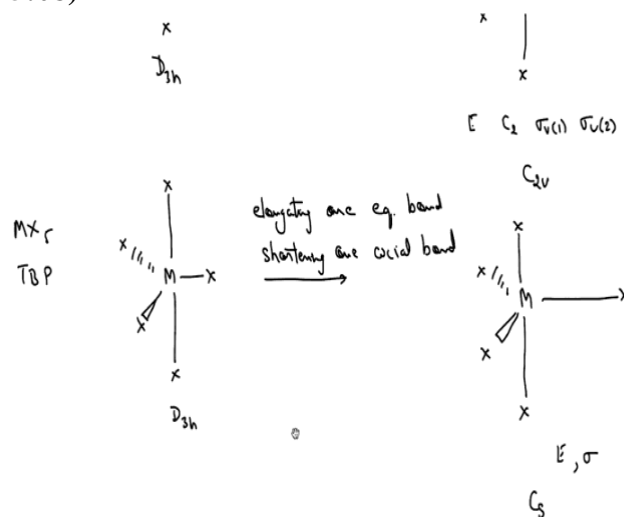 X
D3h
X
X
E C2 σv(1) σv(2)
C2v
MX5
TBP
X
X
M
X
X
X
D3h
elongating one eq. bond
shortening one axial bond
X
X
M
X
X
X
E, σ
Cs